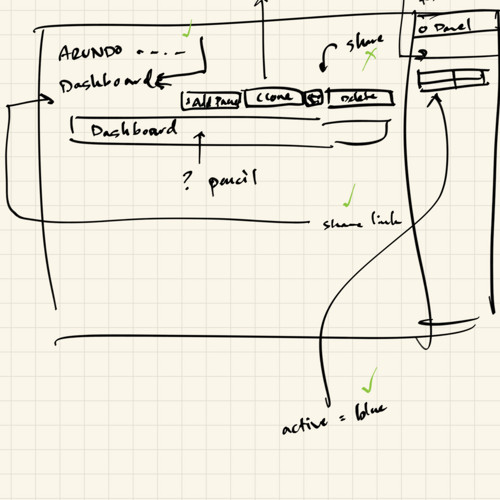 ARUNDO ----
share
Dashboard
Panel
Add Panel
Clone
Delete
Dashboard
? pencil
share link
active = blue